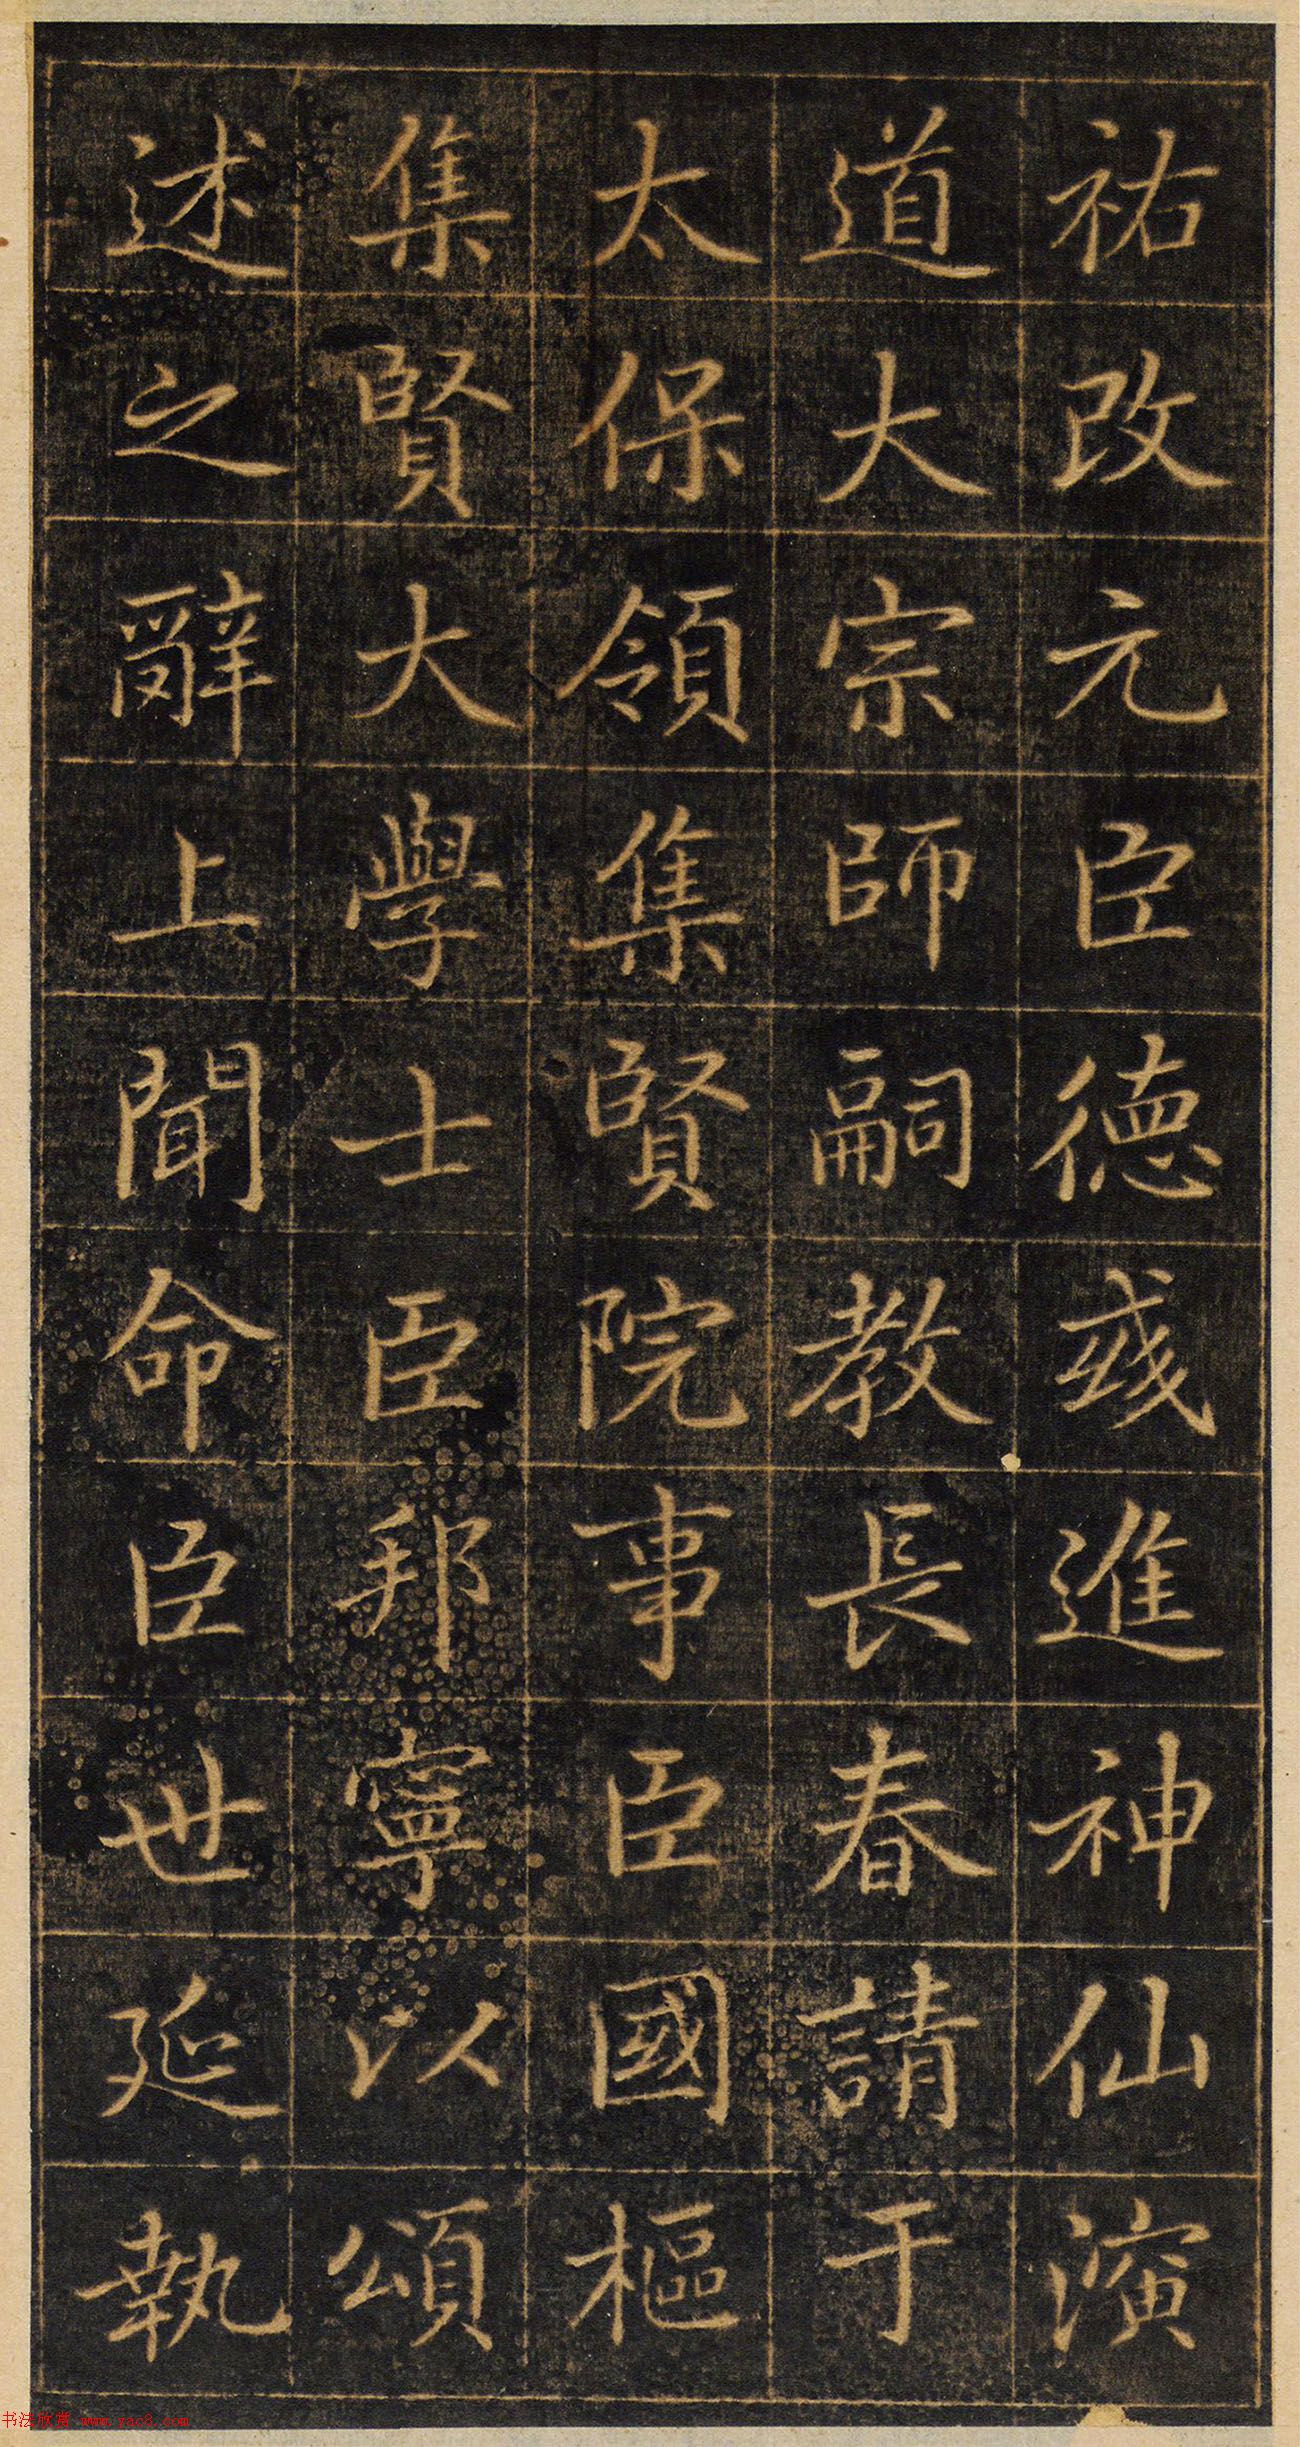 祐改元臣德彧進神仙演
道大宗師嗣教長春請于
太保領集賢院事臣國樞
集賢大學士臣邦寧以頌
述之辭上聞命臣世延執
书法欣赏 www.yac8.com